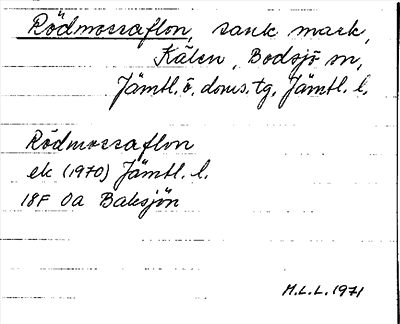 Rödmossaflon, sank mark,
Kälen, Bodsjö sn,
Jämtl. ö. doms. tg, Jämtl. l.
Rödmossaflon
ek (1970) Jämtl. l.
18F 0a Baksjön
M.L.L. 1971